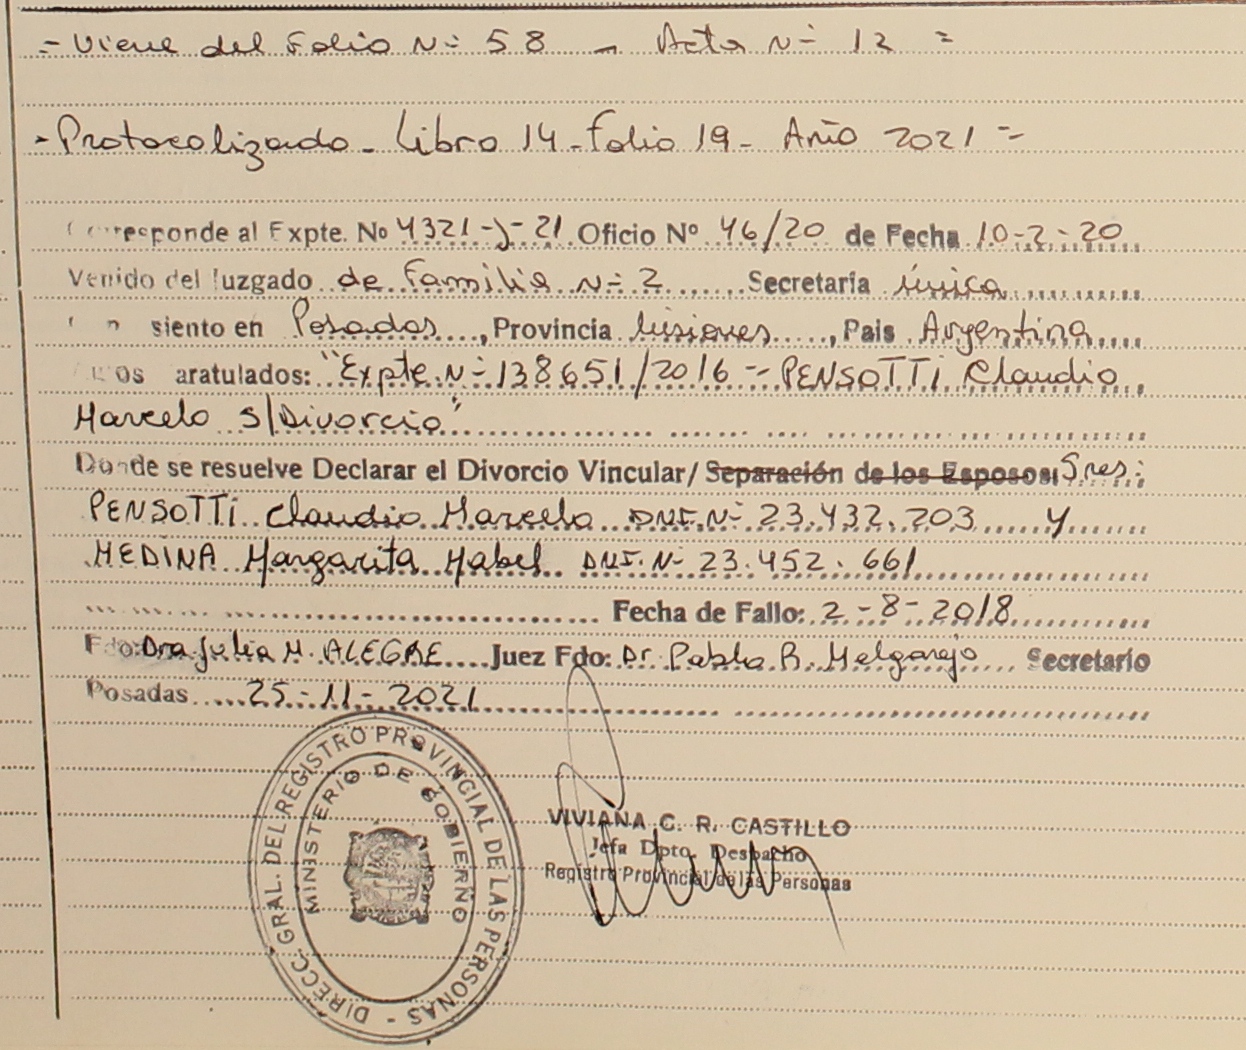 = Viene del Folio Nº 58 - Acta Nº 12 =
- Protocolizado - Libro 14 - Folio 19 - Año 2021 =
Corresponde al Expte. No 4321-J-21 Oficio Nº 46/20 de Fecha 10-2-20
Venido del Juzgado de Familia Nº 2 Secretaria única
siento en Posadas, Provincia Misiones, Pais Argentina
aratulados: "Expte. Nº 138651/2016 - PENSOTTI Claudio
Marcelo S/Divorcio"
Donde se resuelve Declarar el Divorcio Vincular/ Separación de los Esposos: Sres:
PENSOTTI Claudio Marcelo DNI. Nº 23.432.203 y
MEDINA Margarita Mabel DNI. Nº 23.452.661
Fecha de Fallo: 2-8-2018
Fdo: Dra Julia M. ALEGRE Juez Fdo: Dr. Pablo R. Melgarejo Secretario
Posadas 25-11-2021
DIRECC. GRAL. DEL REGISTRO PROVINCIAL DE LAS PERSONAS -
MINISTERIO DE GOBIERNO
VIVIANA C. R. CASTILLO
Jefa Dpto. Despacho
Registro Provincial de las Personas